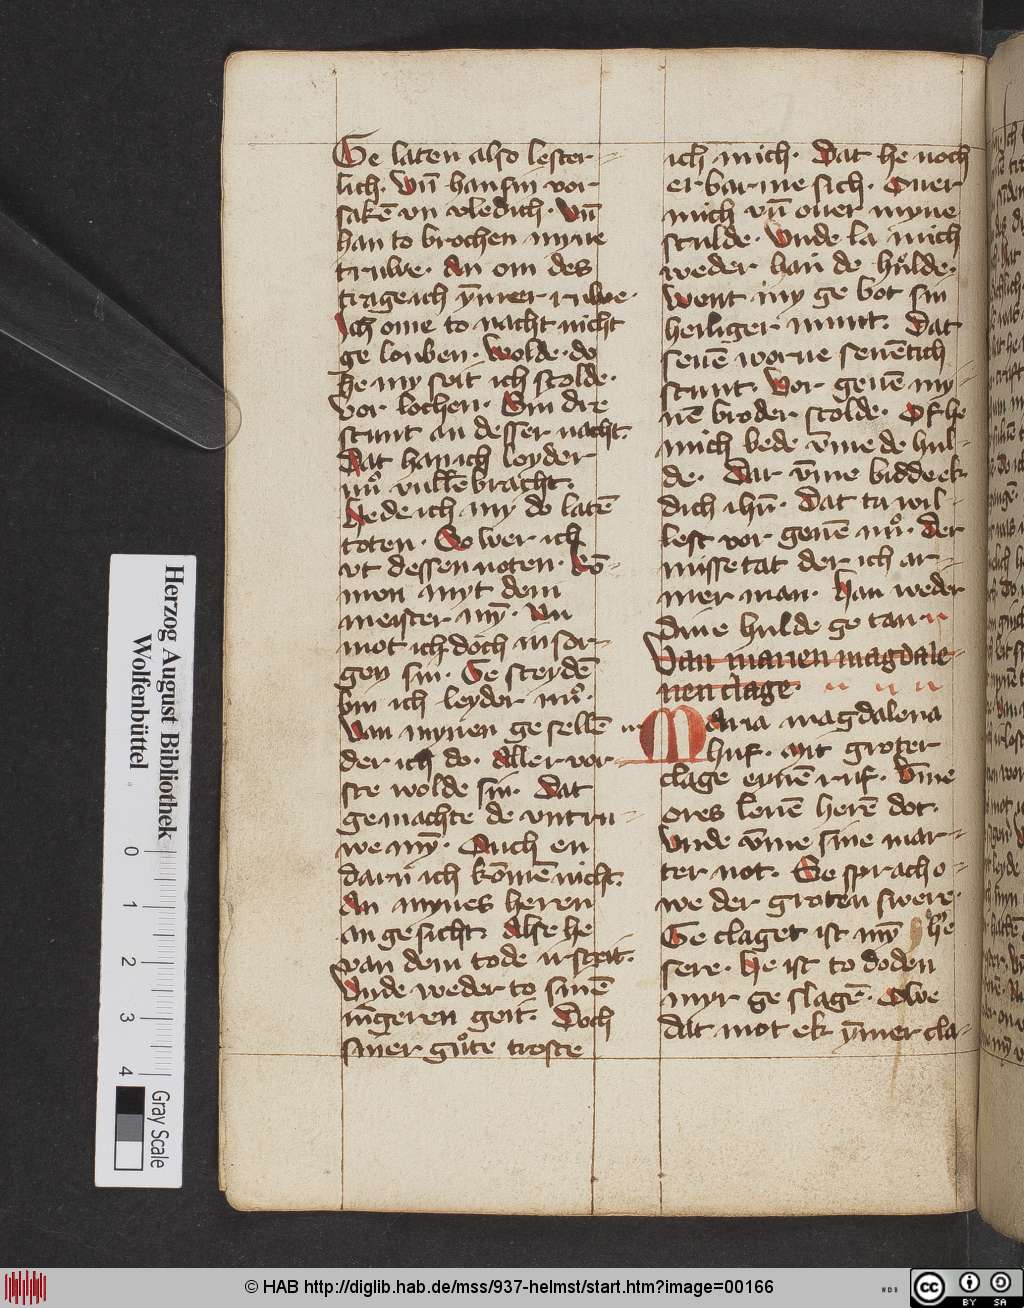 Ge laten also lester-
lich. Vn̄ han sin vor
sakē vn vledich. Vn̄
han to brochen myne
truwe. An om des
trage ich ÿmer ruwe.
Ich ome to nacht nicht
ge louben. Wolde. do
he my seit ich scolde.
vor lochen. Din dre
stunt an desser nacht.
Dat han ich leyder
nuͦ vullēbracht.
Hede ich my do latē
toten. So wer ich
vt dessen noten. Kō-
men myt dem
meister mȳ. Nu
mot ich doch in sor-
gen sin. Ge scheydē
bin ich leyder nuͦ.
Van mynen ge sellē
der ich do. Aller vor-
ste wolde sin. Dat
gemachte de vntru-
we mȳ. Ouch en
darn ich kōmē nicht.
An mynes heren
an gesicht. Alse he
van dem tode irsteit.
Vnde weder to sinē
iūgeren geit. Doch
siner guͦte troste
ich mich. Dat he noch
erbarme sich. Ouer
mich vn̄ ouer myne
sculde. Vnde la mich
weder han de hulde.
Went my ge bot sin
heiliger munt. Dat
seuē worue seuētich
stunt. Vor geuē my-
nē broder scolde. Of he
mich bede v̄me de hul-
de. Dar v̄me bidde ek
dich ihū. Dat tu wil-
lest vor geuē nuͦ. Der
missetat der ich ar-
mer man. Han weder
dine hulde ge tan
Van marien magdale-
nen clage.
Maria magdalena
huf. mit groter
clage eynē ruf. V̄me
ores leuē herē dot.
Vnde v̄me sine mar-
ter not. Se sprach o-
we der groten swere.
Ge claget ist mȳ he͛re
sere. He ist to doden
myr ge slagē. Owe
dat mot ek ÿmer cla-
Herzog August Bibliothek
Wolfenbüttel
0
1
2
3
4
Gray Scale
© HAB http://diglib.hab.de/mss/937-helmst/start.htm?image=00166
WDB
cc
BY SA